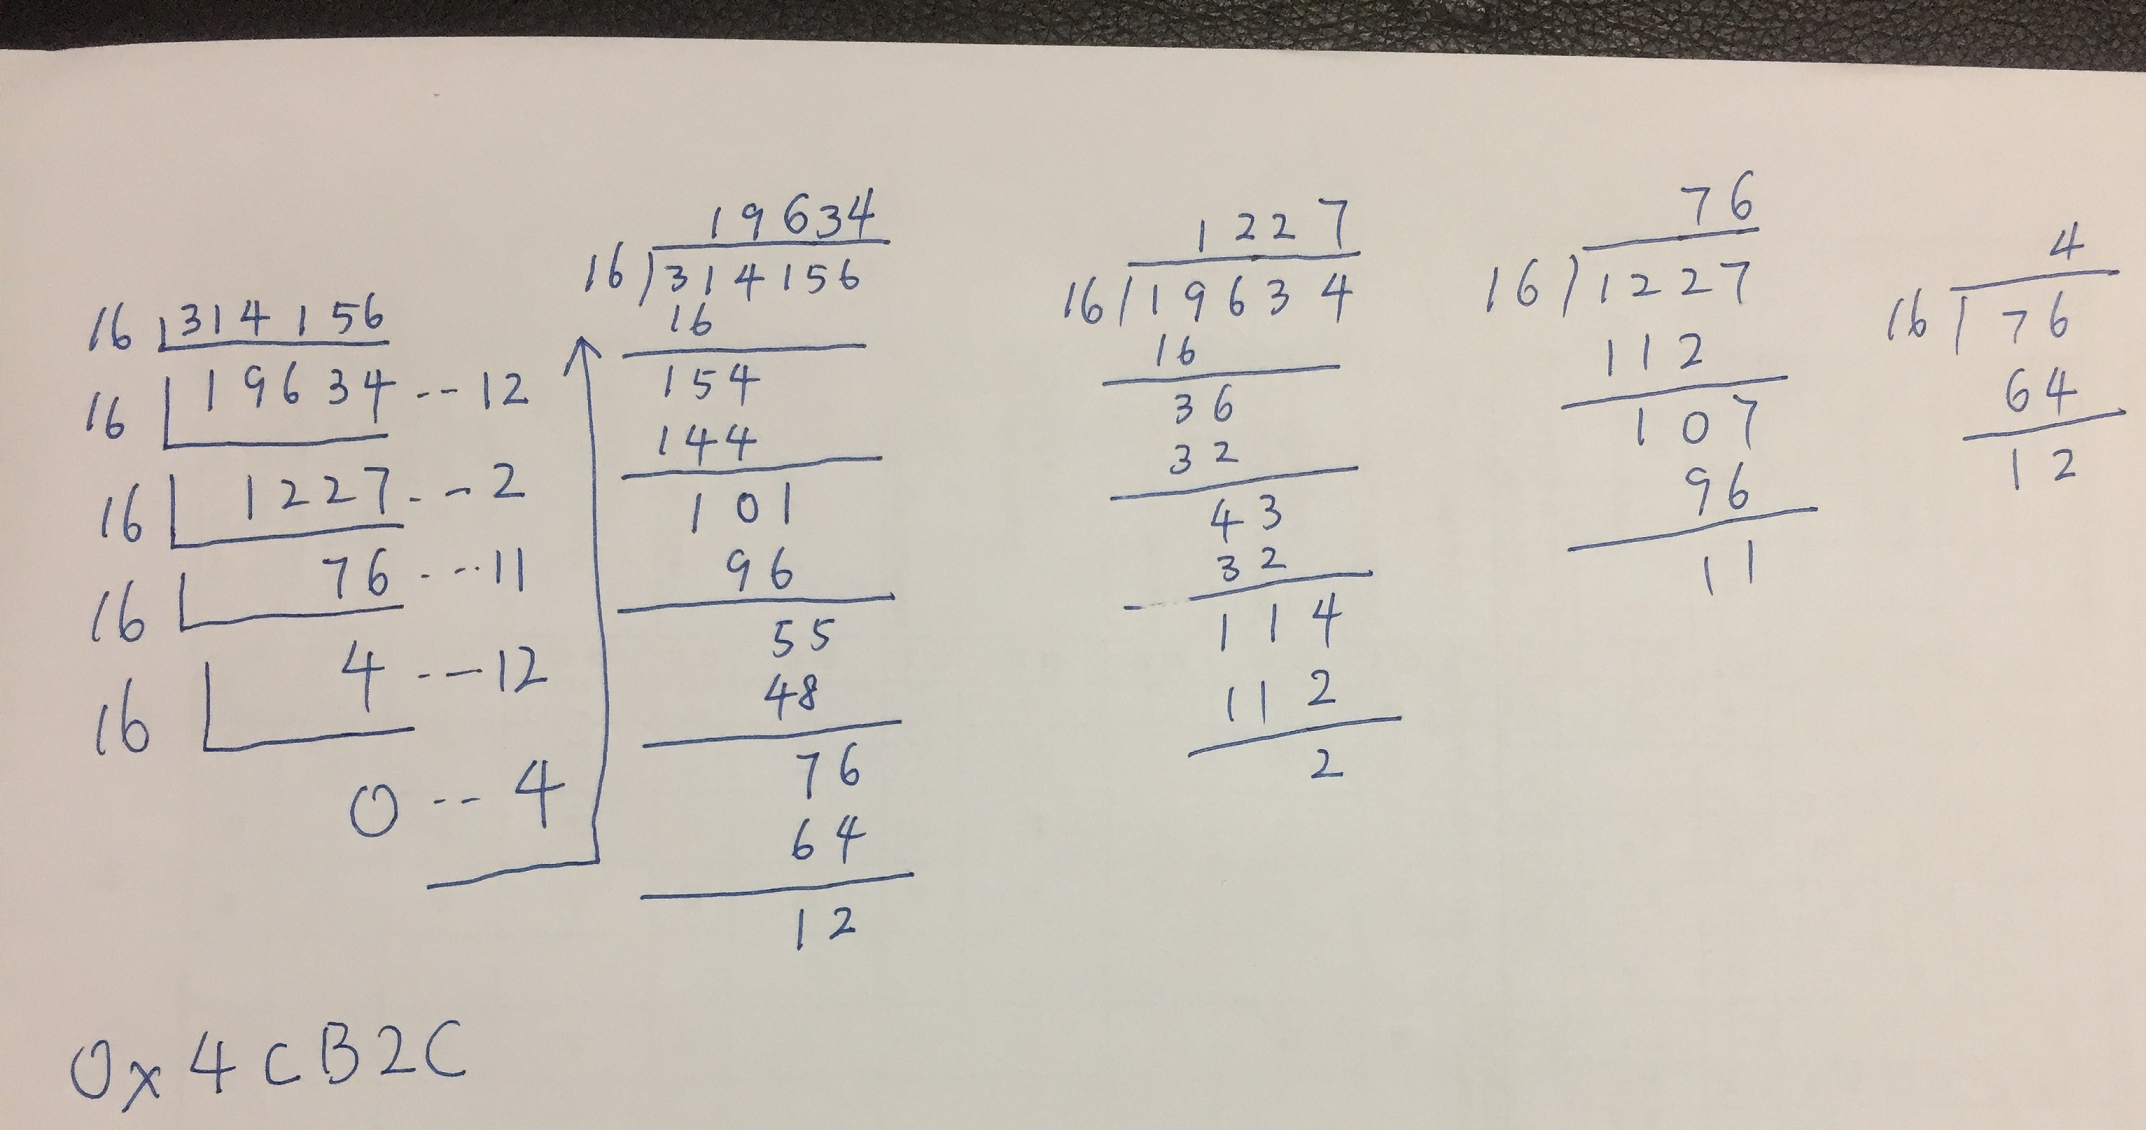 16 314156
16 19634 --12
16 1227 --2
16 76 ---11
16 4 --12
16
0 --4
19634
16)314156
16
154
144
101
96
55
48
76
64
12
1227
16)19634
16
36
32
43
32
114
112
2
76
16)1227
112
107
96
11
4
16)76
64
12
0x4CB2C